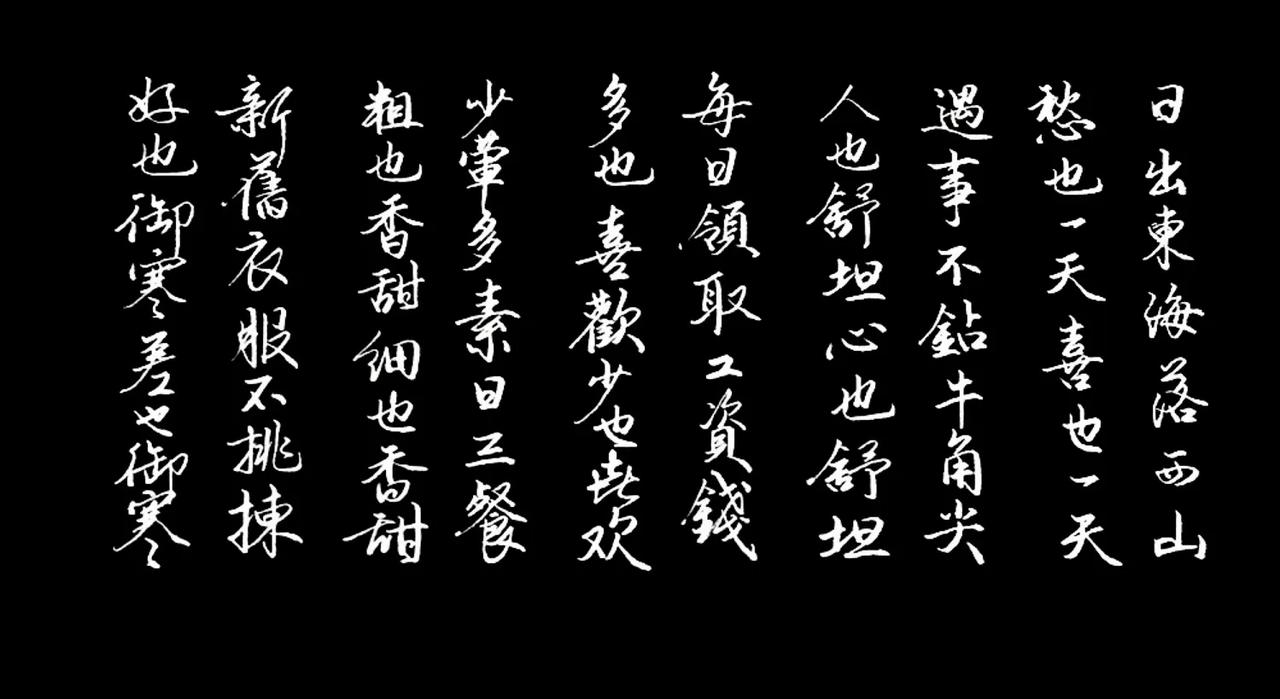 日出東海落西山
愁也一天喜也一天
遇事不鉆牛角尖
人也舒坦心也舒坦
每日領取工資錢
多也喜歡少也喜欢
少葷多素日三餐
粗也香甜细也香甜
新舊衣服不挑揀
好也御寒差也御寒